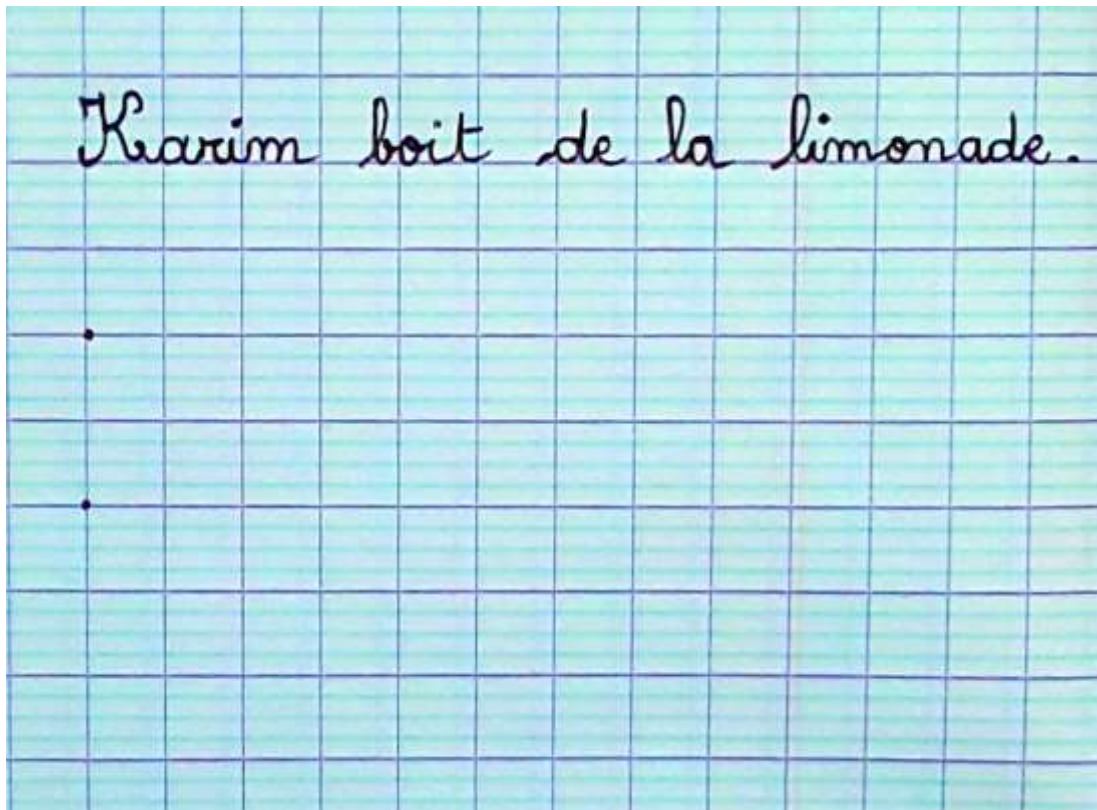 Karim boit de la limonade.